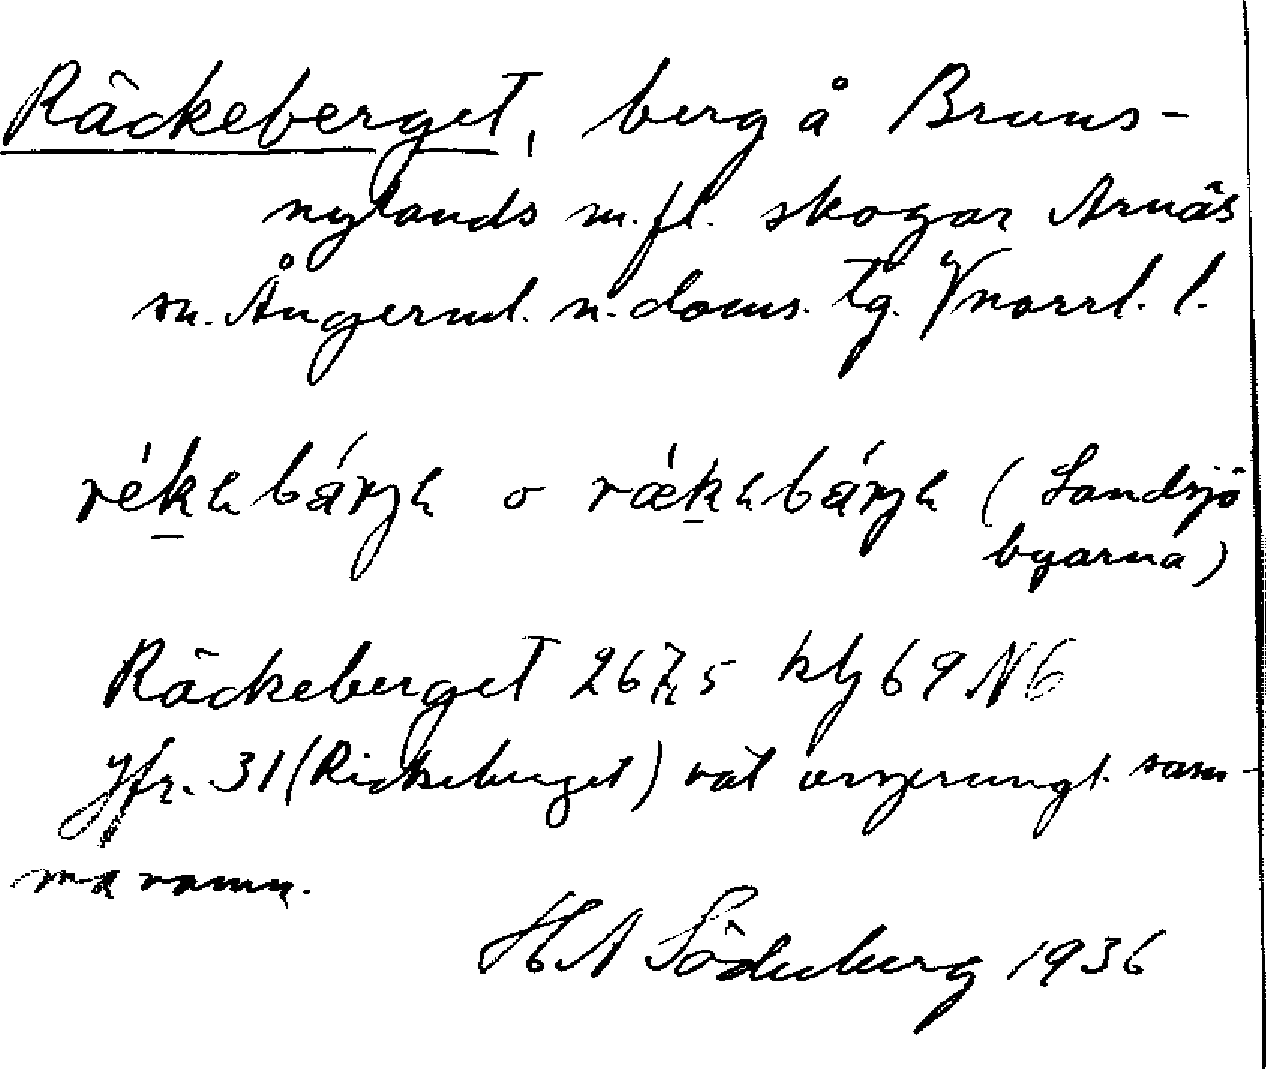 Räckeberget, berg å Bruns-
nylands m.fl. skogar Arnäs
sn. Ångerml. n. doms. tg. Vnorrl. l.
(Landsjö
byarna)
Räckeberget 267,5 69 N6
Jfr. 31 (Rickeberget) väl ursprungl. sam-
ma namn.
HA Söderberg 1936